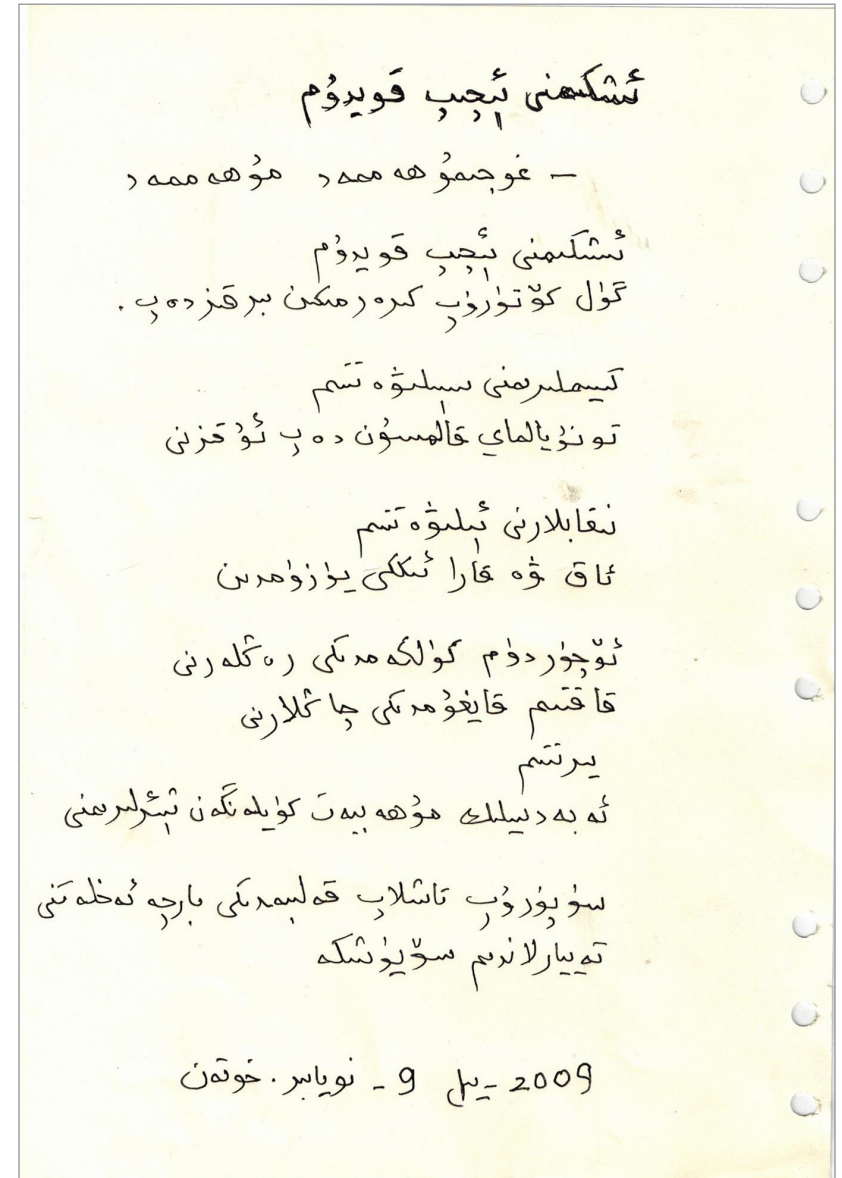 ئىشكىمنى ئېچىپ قويدۇم
– غوجىمۇھەممەد مۇھەممەد
ئىشكىمنى ئېچىپ قويدۇم
گۈل كۆتۈرۈپ كىرەرمىكىن بىر قىز دەپ .
كىيىملىرىمنى سېلىۋەتتىم
تونۇيالماي قالمىسۇن دەپ ئۇ قىزنى
نىقابلارنى ئېلىۋەتتىم
ئاق ۋە قارا ئىككى يۈزۈمدىن
ئۆچۈردۈم كۈلكەمدىكى رەڭلەرنى
قاقتىم قايغۇمدىكى چاڭلارنى
يىرتتىم
ئەبەدىيلىك مۇھەببەت كۈيلەنگەن شېئىرلىرىمنى
سۈپۈرۈپ تاشلاپ قەلبىمدىكى بارچە ئەخلەتنى
تەييارلاندىم سۆيۈشكە
2009 - يىل 9 - نويابىر . خوتەن